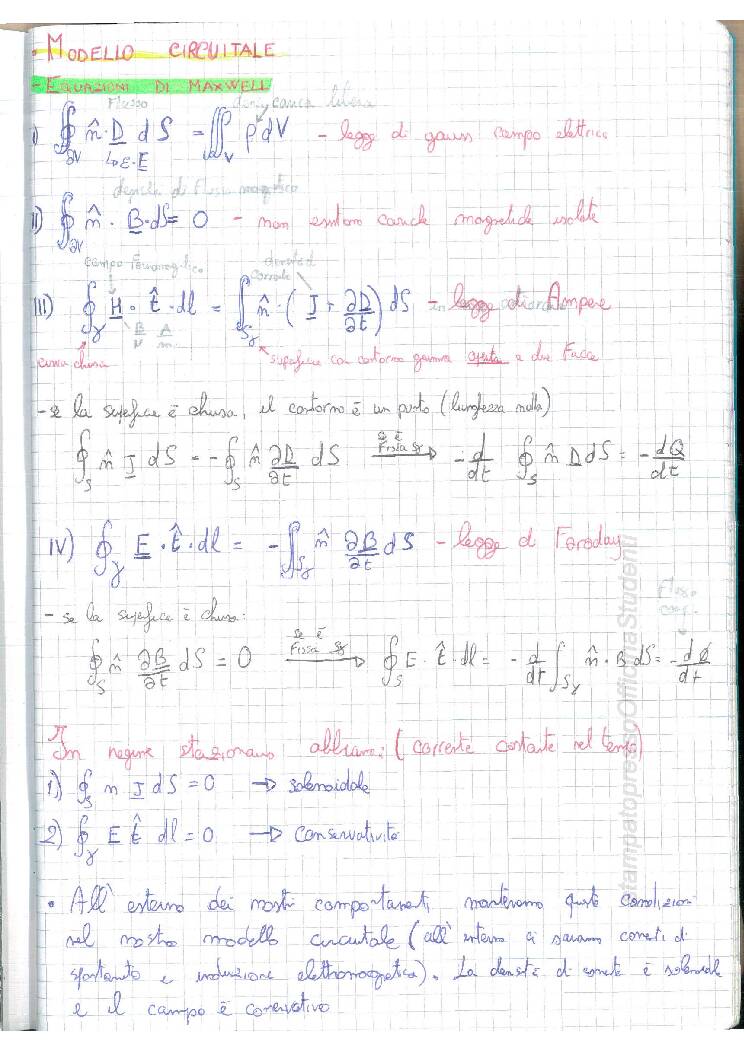 • MODELLO CIRCUITALE
- EQUAZIONI DI MAXWELL
Flusso carica libera
I) ∯_∂V n̂ · D dS = ∭_V ρ dV - legge di gauss campo elettrico
↳ ε·E
densità di flusso magnetico
II) ∯_∂V n̂ · B · dS = 0 - non esistono cariche magnetiche isolate
campo densità di corrente
III) ∮_γ H · t̂ · dl = ∫_Sγ n̂ · (J + ∂D/∂t) dS - legge di Ampere
B/μ A/m
curva chiusa superficie con contorno gamma aperta a due facce
- se la superficie è chiusa, il contorno è un punto (lunghezza nulla)
∮_S n̂ J dS = - ∮_S n̂ ∂D/∂t dS se è fissa Sγ → - d/dt ∮_S n̂ D dS = - dQ/dt
IV) ∮_γ E · t̂ · dl = - ∫_Sγ n̂ ∂B/∂t dS - legge di Faraday
Flusso
- se la superficie è chiusa:
∮_S n̂ ∂B/∂t dS = 0 se è fissa Sγ → ∮_S E · t̂ · dl = - d/dt ∫_Sγ n̂ · B dS = - dΦ/dt
In regime stazionario abbiamo: (corrente costante nel tempo)
1) ∮_S n J dS = 0 → solenoidale
2) ∮_γ E t̂ dl = 0 → conservatività
• All' esterno dei nostri componenti, manteniamo queste condizioni
nel nostro modello circuitale (all' interno ci saranno correnti di
spostamento e induzione elettromagnetica). La densità di corrente è solenoidale
e il campo è conservativo
stampatopressoOfficinaStudenti